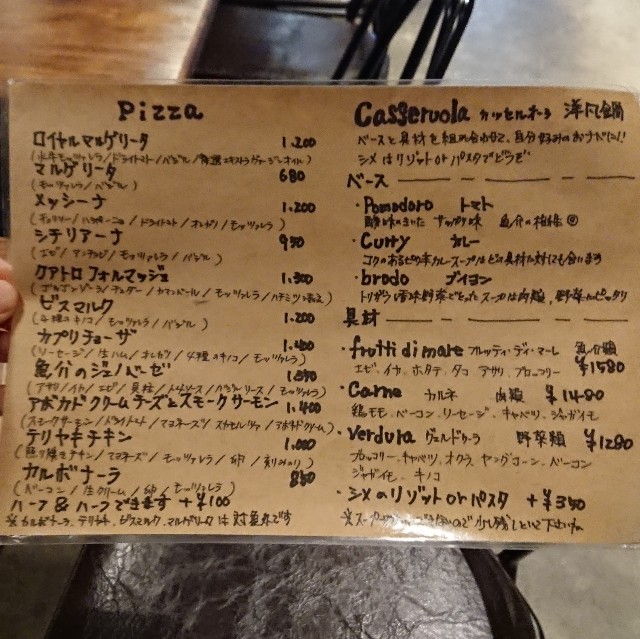 Pizza
ロイヤルマルゲリータ 1.200
(水牛モッツァレラ/ドライトマト/バジル/特選エキストラヴァージンオイル)
マルゲリータ 680
(モッツァレラ/バジル)
メッシーナ 1.200
(チョリソー/ハラペーニョ/ドライトマト/オレガノ/モッツァレラ)
シチリアーナ 950
(エビ/アンチョビ/モッツァレラ/バジル)
クアトロフォルマッジェ 1.300
(ゴルゴンゾーラ/チェダー/カマンベール/モッツァレラ/ハチミツ添え)
ビスマルク 1.200
(4種のキノコ/モッツァレラ/バジル)
カプリチョーザ 1.400
(ソーセージ/生ハム/オレガノ/4種のキノコ/モッツァレラ)
魚介のジェノベーゼ
(アサリ/イカ/エビ/貝柱/トマトソース/バジルソース/モッツァレラ)
アボカドクリームチーズとスモークサーモン 1.400
(スモークサーモン/ドライトマト/マヨネーズ/スカモルツァ/アボカドクリーム)
テリヤキチキン 1.000
(照り焼きチキン/マヨネーズ/モッツァレラ/卵/刻みのり)
カルボナーラ 850
(ベーコン/生クリーム/卵/モッツァレラ)
ハーフ&ハーフできます +¥100
※カルボナーラ、テリヤキ、ビスマルク、マルゲリータは対象外です
Casseruola カッセルオーラ 洋風鍋
ベースと具材を組み合わせて、自分好みのおナベに!!
シメはリゾットorパスタでどうぞ
ベース
・Pomodoro トマト
酸味のきいた サッパリ味 魚介の相性◎
・Curry カレー
コクのあるピリ辛カレースープはどの具材に対しても合います
・brodo ブイヨン
トリガラと香味野菜でとったスープは肉類、野菜にピッタリ
具材
・frutti di mare フルッティ・ディ・マーレ 魚介類 ¥1580
エビ、イカ、ホタテ、タコ アサリ、ブロッコリー
・Carne カルネ 肉類 ¥1480
鶏モモ、ベーコン、ソーセージ、キャベツ、ジャガイモ
・Verdura ヴェルドゥーラ 野菜類 ¥1280
ブロッコリー、キャベツ、オクラ、ヤングコーン、ベーコン
ジャガイモ、キノコ
・シメのリゾットorパスタ +¥350
※スープ